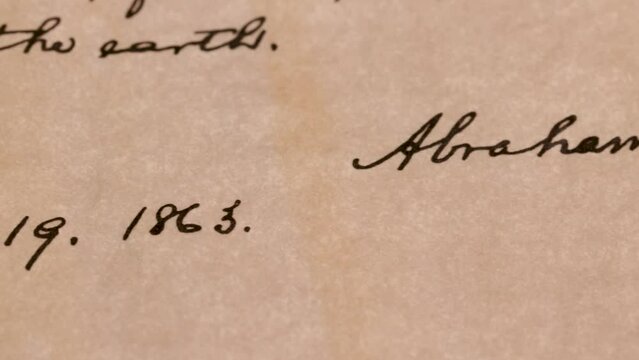 the earth.
Abraham
19. 1863.